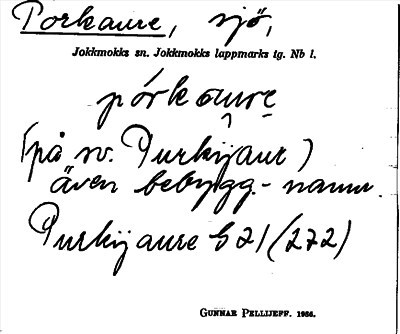 Porkaure, sjö,
Jokkmokks sn. Jokkmokks lappmarks tg. Nb l.
pórkaure
(på sv. Purkijaur)
även bebygg.-namn.
Purkijaure G 21 (272)
GUNNAR PELLIJEFF. 1956.